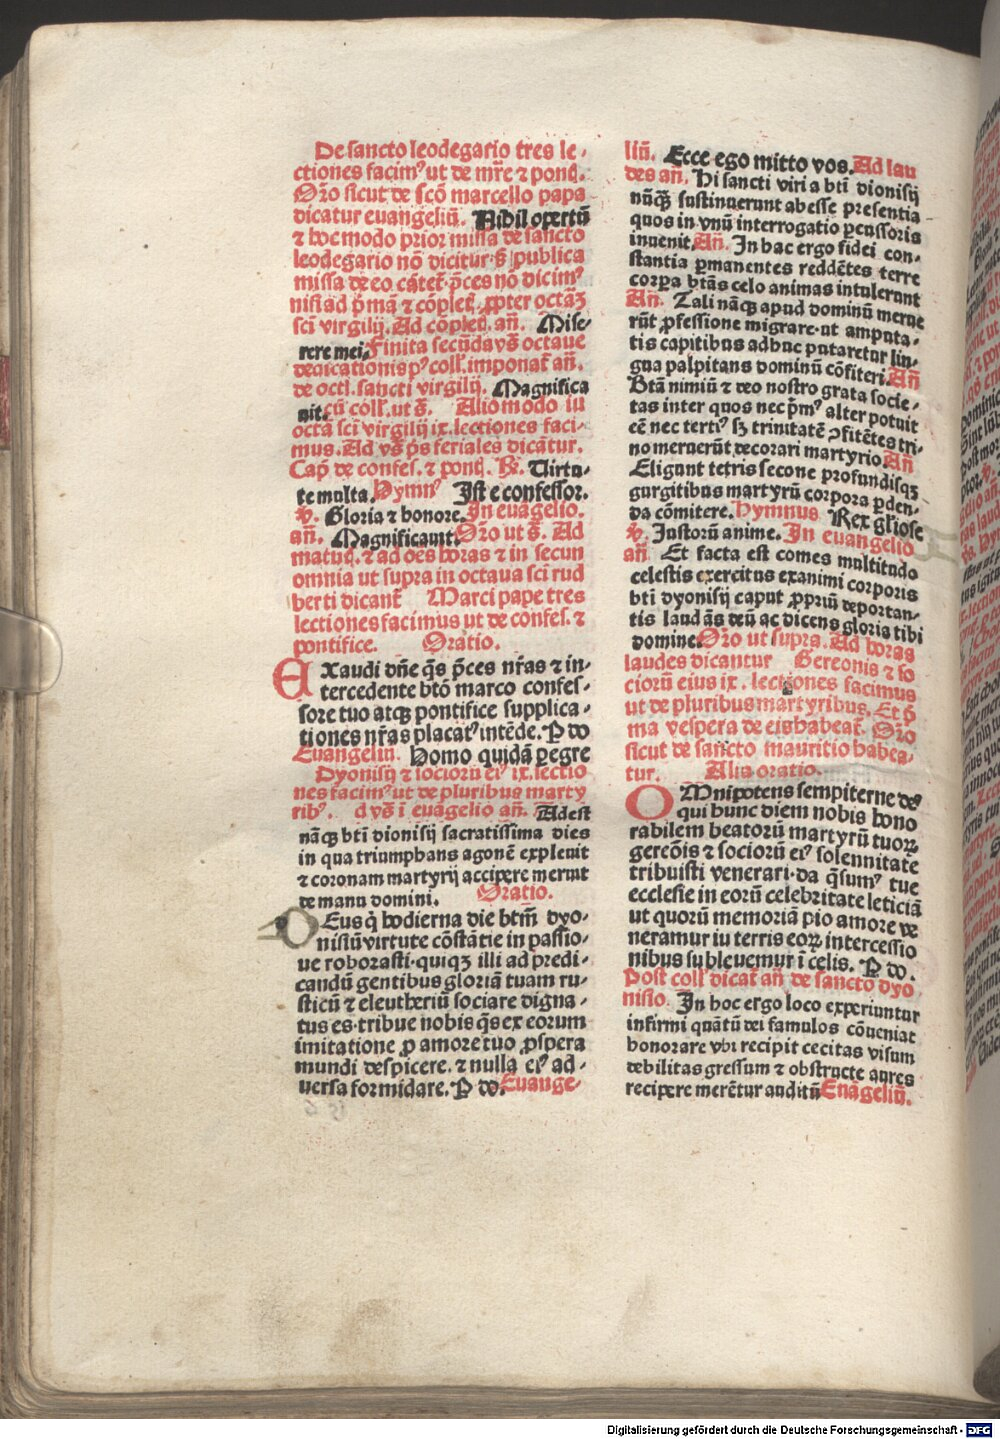 De sancto leodegario tres le⸗
ctiones facimꝰ ut de mr̄e ⁊ pont̄.
Oro̅ sicut de sco̅ marcello papa
dicatur euangeliū. Nihil opertū
⁊ hoc modo prior missa de sancto
leodegario nō dicitur s̄ publica
missa de eo cātet̄ p̄ces nō dicimꝰ
nisi ad p̄mā ⁊ cōplet̄. ꝓpter octāꝫ
sci̅ virgilij. Ad cōplet̄. an̄. Mise⸗
rere mei. Finita secūda vs̄ octaue
dedicationis pꝰ coll̄. imponat̄ an̄.
de oct̄. sancti virgilij. Magnifica
uit. cū coll̄. ut s̄. Alio modo iu
octa̅ sci̅ virgilij ix. lectiones faci⸗
mus. Ad vs̄ p̄s feriales dicātur.
Cap̄ de confes. ⁊ pont̄. R̄. Uirtu⸗
te multa. Hymnꝰ Iste confessor.
v̄. Gloria ⁊ honore. In euāgelio.
an̄. Magnificauit. Oro̅ ut s̄. Ad
matut̄. ⁊ ad oēs horas ⁊ in secun
omnia ut supra in octaua sci̅ rud
berti dicant̄ Marci pape tres
lectiones facimus ut de confes. ⁊
pontifice. Oratio.
Exaudi dn̄e q̄s p̄ces nr̄as ⁊ in⸗
tercedente bt̄o marco confes⸗
sore tuo atqꝫ pontifice supplica⸗
tiones nr̄as placatꝰ intēde. P do
Euangeliū. Homo quidā peregre
Dyonisij ⁊ sociorū eiꝰ ix. lectio
nes facimꝰ ut de pluribus marty
ribꝰ. d vs̄ i euāgelio an̄. Adest
nāqꝫ bt̄i dionisij sacratissima dies
in qua triumphans agonē expleuit
⁊ coronam martyrij accipere meruit
de manu domini. Oratio.
Deus q̄ hodierna die bt̄m̄ dyo⸗
nisiū virtute cōstātie in passio⸗
ne roborasti. quiqꝫ illi ad predi⸗
candū gentibus gloriā tuam ru⸗
sticū ⁊ eleutheriū sociare digna⸗
tus es. tribue nobis q̄s ex eorum
imitatione ꝓ amore tuo ꝓspera
mundi despicere. ⁊ nulla eiꝰ ad⸗
versa formidare. P do. Euange⸗
liū. Ecce ego mitto vos. Ad lau
des an̄. Hi sancti viri a bt̄i dionisij
nūqꝫ sustinuerunt abesse presentia
quos in vnū interrogatio percussoris
inuenit. An̄. In hac ergo fidei con⸗
stantia permanentes reddētes terre
corpora bt̄as celo animas intulerunt
An̄. Tali nāqꝫ apud dominū merue
rūt ꝓfessione migrare. ut amputa⸗
tis capitibus adhuc putaretur lin⸗
gua palpitans dominū cōfiteri. An̄
Bt̄ā nimiū ⁊ deo nostro grata socie⸗
tas inter quos nec p̄mꝰ alter potuit
eē nec tertiꝰ sꝫ trinitatē ꝯfitētes tri⸗
no meruerūt decorari martyrio. An̄
Eligunt tetris secone profundisqꝫ
gurgitibus martyrū corpora perden⸗
da cōmitere. Hymnus Rex gl̄iose
v̄. Justorū anime. In euangelio
an̄. Et facta est comes multitudo
celestis exercitus exanimi corporis
bt̄i dyonisij caput ꝓpriū deportan⸗
tis laudās deū ac dicens gloria tibi
domine. Oro̅ ut supra. Ad horas
laudes dicantur Gereonis ⁊ so
ciorū eius ix. lectiones facimus
ut de pluribus martyribus. Et p̄
ma vespera de eis habeat̄. Oro̅
sicut de sancto mauritio habea⸗
tur. Alia oratio.
Omnipotens sempiterne deꝰ
qui hunc diem nobis hono
rabilem beatorū martyrū tuoꝝ
gereōis ⁊ sociorū eiꝰ solennitate
tribuisti venerari. da q̄sumꝰ tue
ecclesie in eorū celebritate leticiā
ut quorū memoriā pio amore ve
neramur iu terris eoꝝ intercessio
nibus subleuemur i̅ celis. P do.
Post coll̄ dicat̄ an̄ de sancto dyo
nisio. In hoc ergo loco experiuntur
infirmi quātū dei famulos cōueniat
honorare vbi recipit cecitas visum
debilitas gressum ⁊ obstructe aures
recipere merētur auditū Euāgeliū.
Digitalisierung gefördert durch die Deutsche Forschungsgemeinschaft - DFG